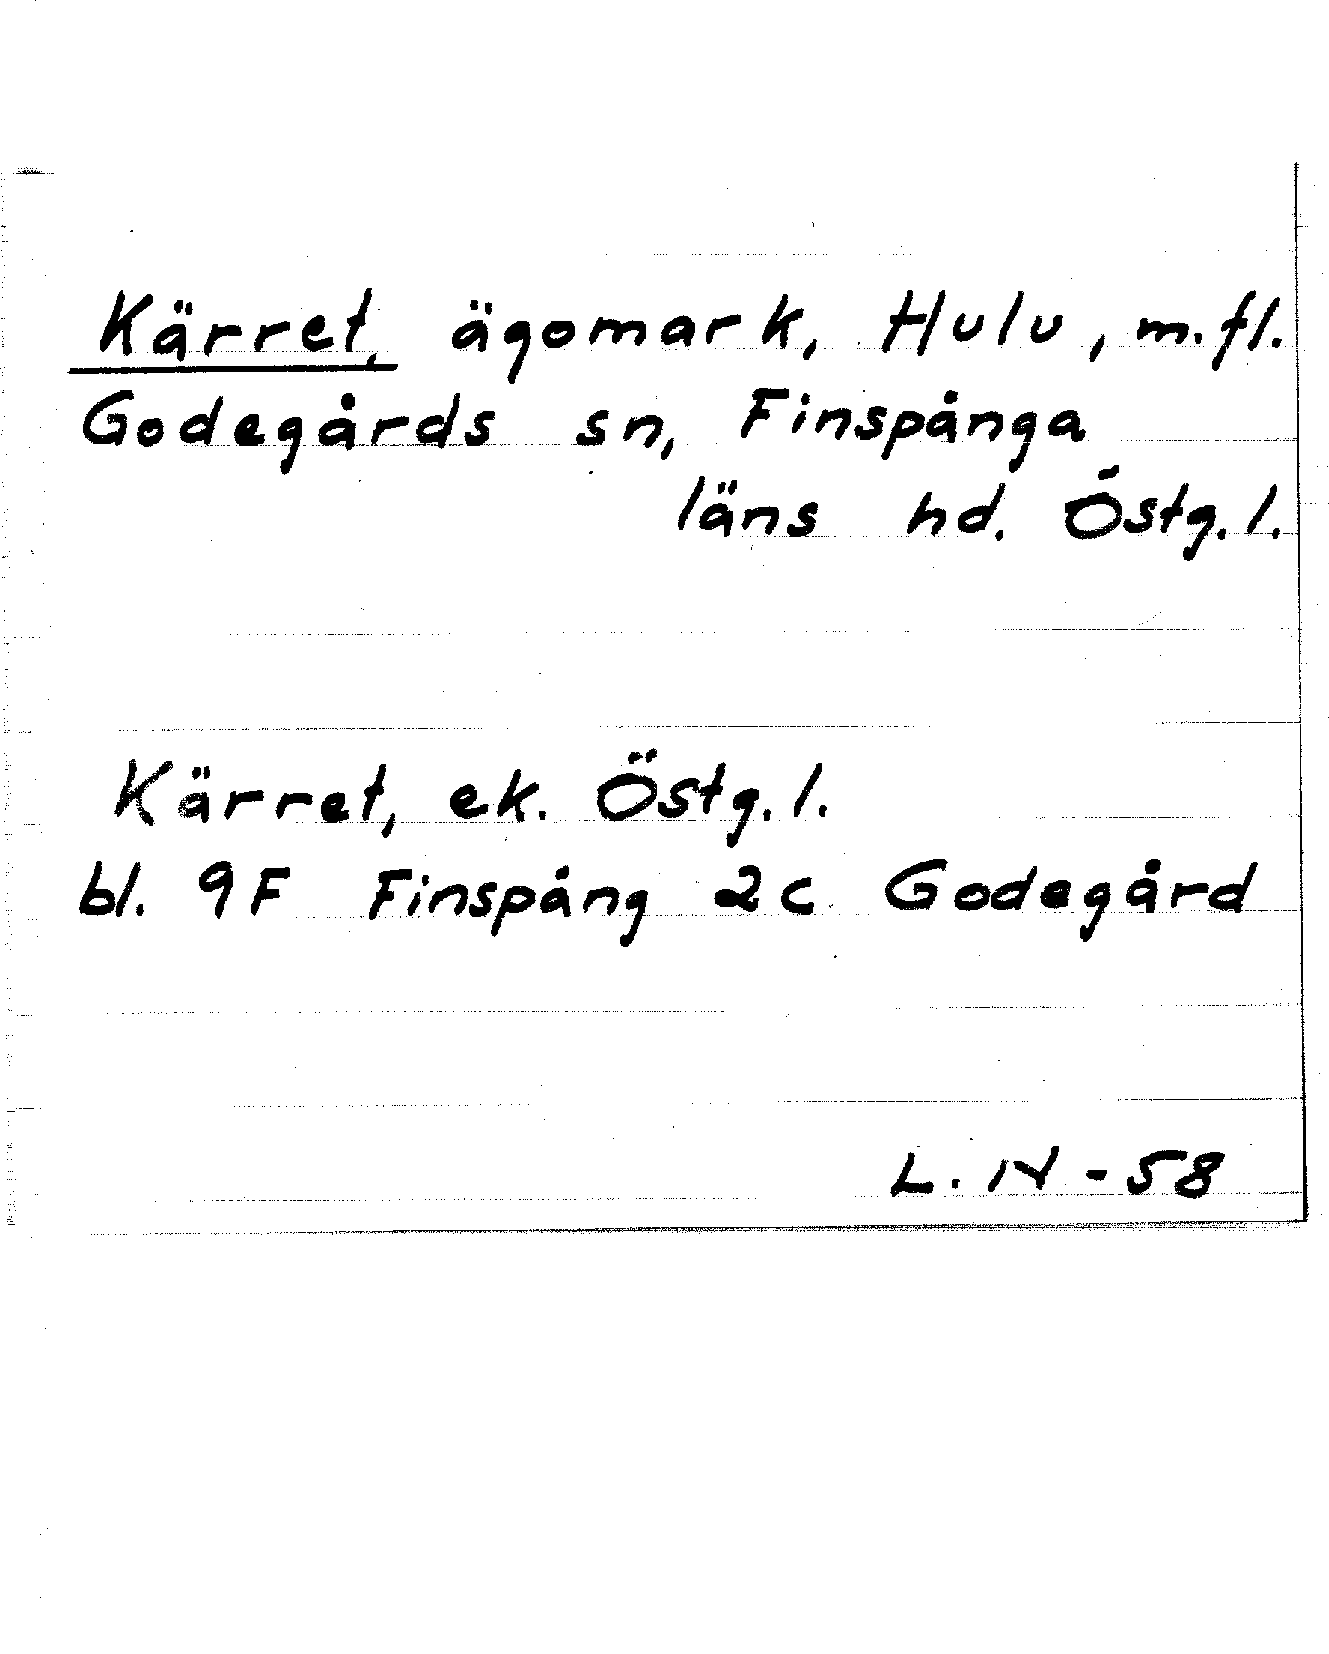 Kärret, ägomark, Hulu, m.fl.
Godegårds sn, Finspånga
läns hd. Östg.l.
Kärret, ek. Östg.l.
bl. 9F Finspång 2c Godegård
L. IV - 58